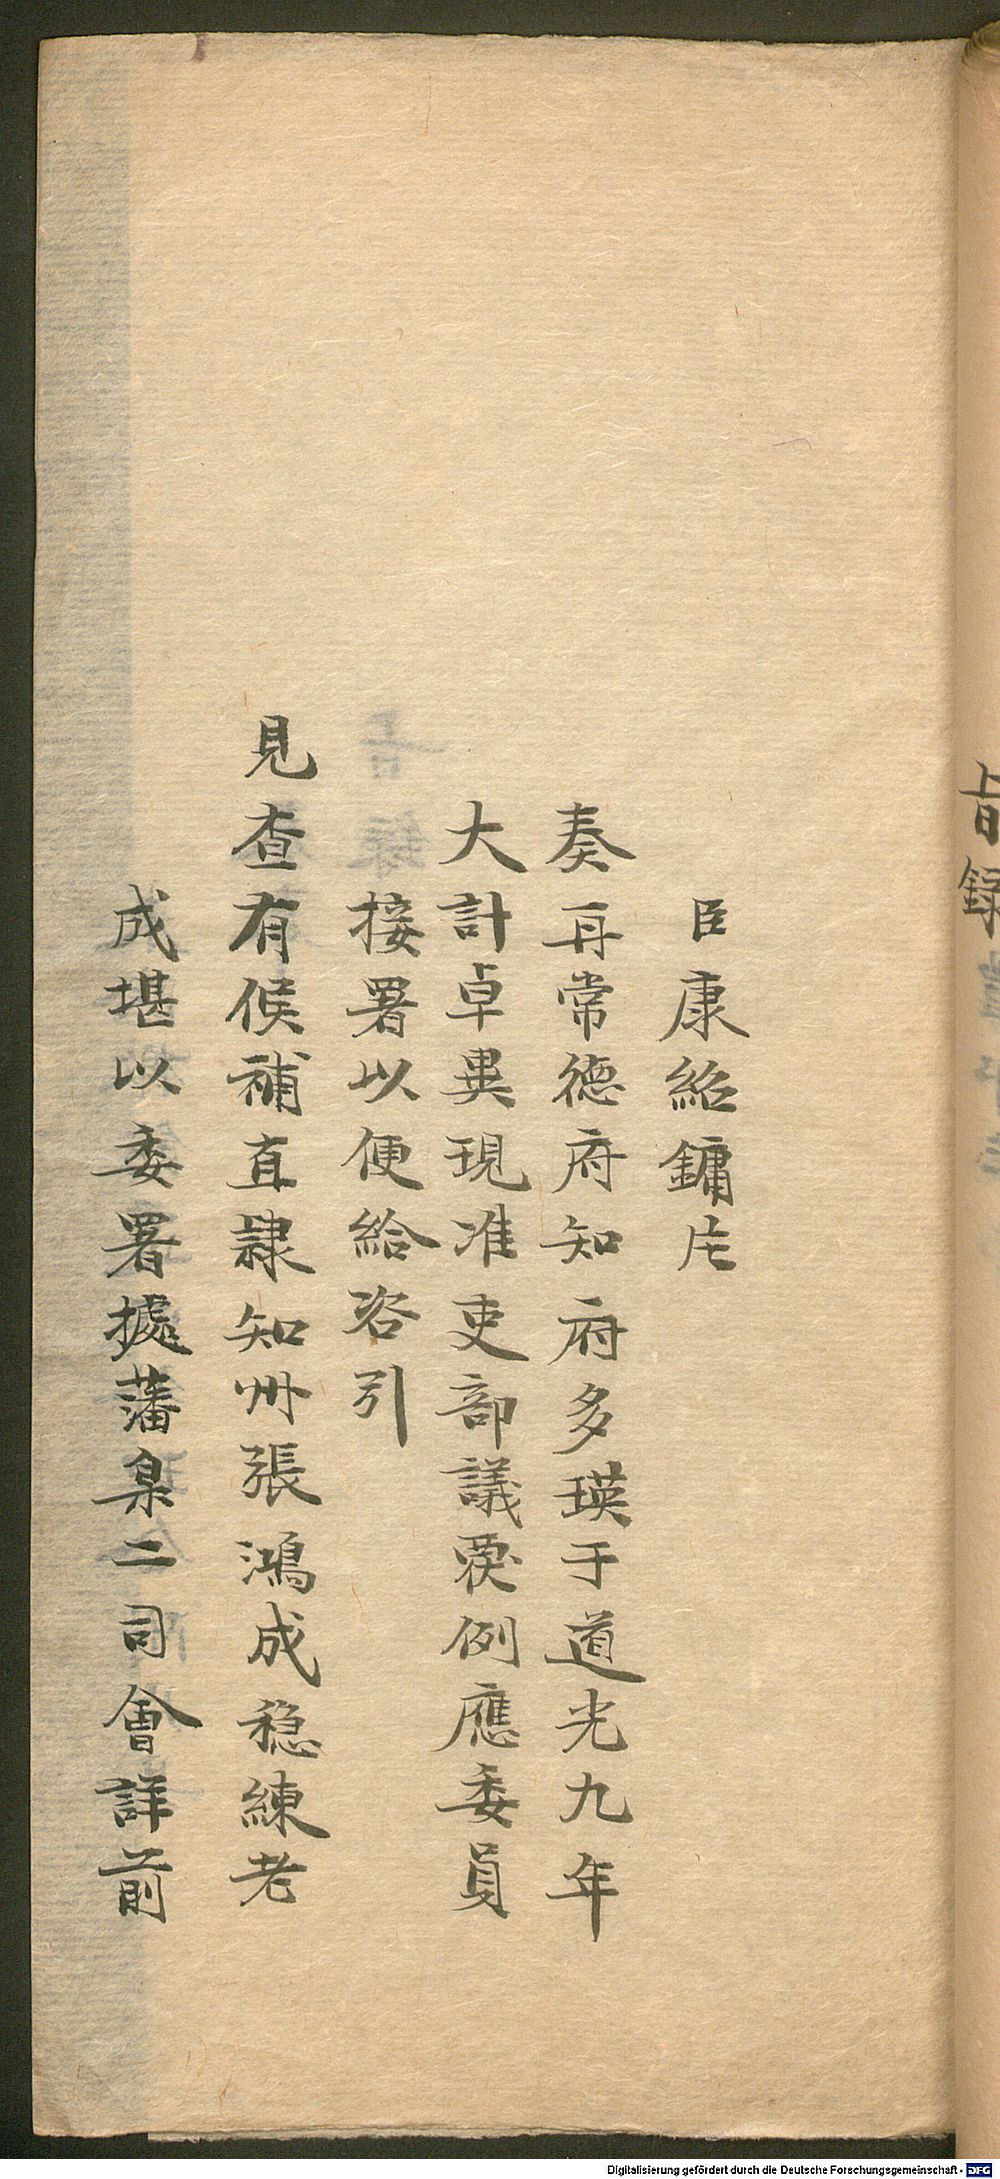 旨錄
臣康紹鏞片
奏再常德府知府多瑛于道光九年
大計卓異現准吏部議覆例應委員
接署以便給咨引
見查有候補直隸知州張鴻成穩練老
成堪以委署據藩臬二司會詳前
Digitalisierung gefördert durch die Deutsche Forschungsgemeinschaft - DFG